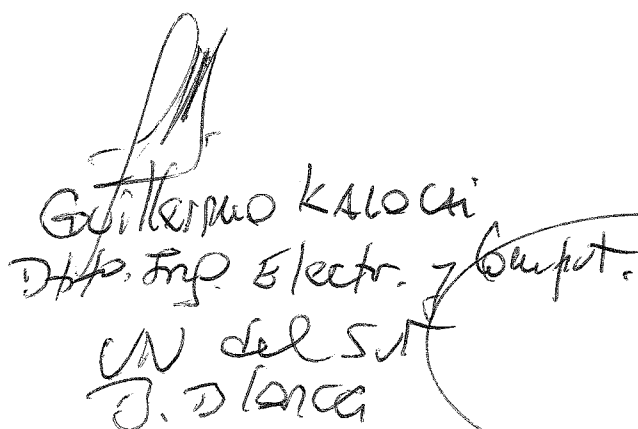 Guillermo KALOCAI
Dpto. Ing. Electr. y Comput.
UN del SUR
B. Blanca